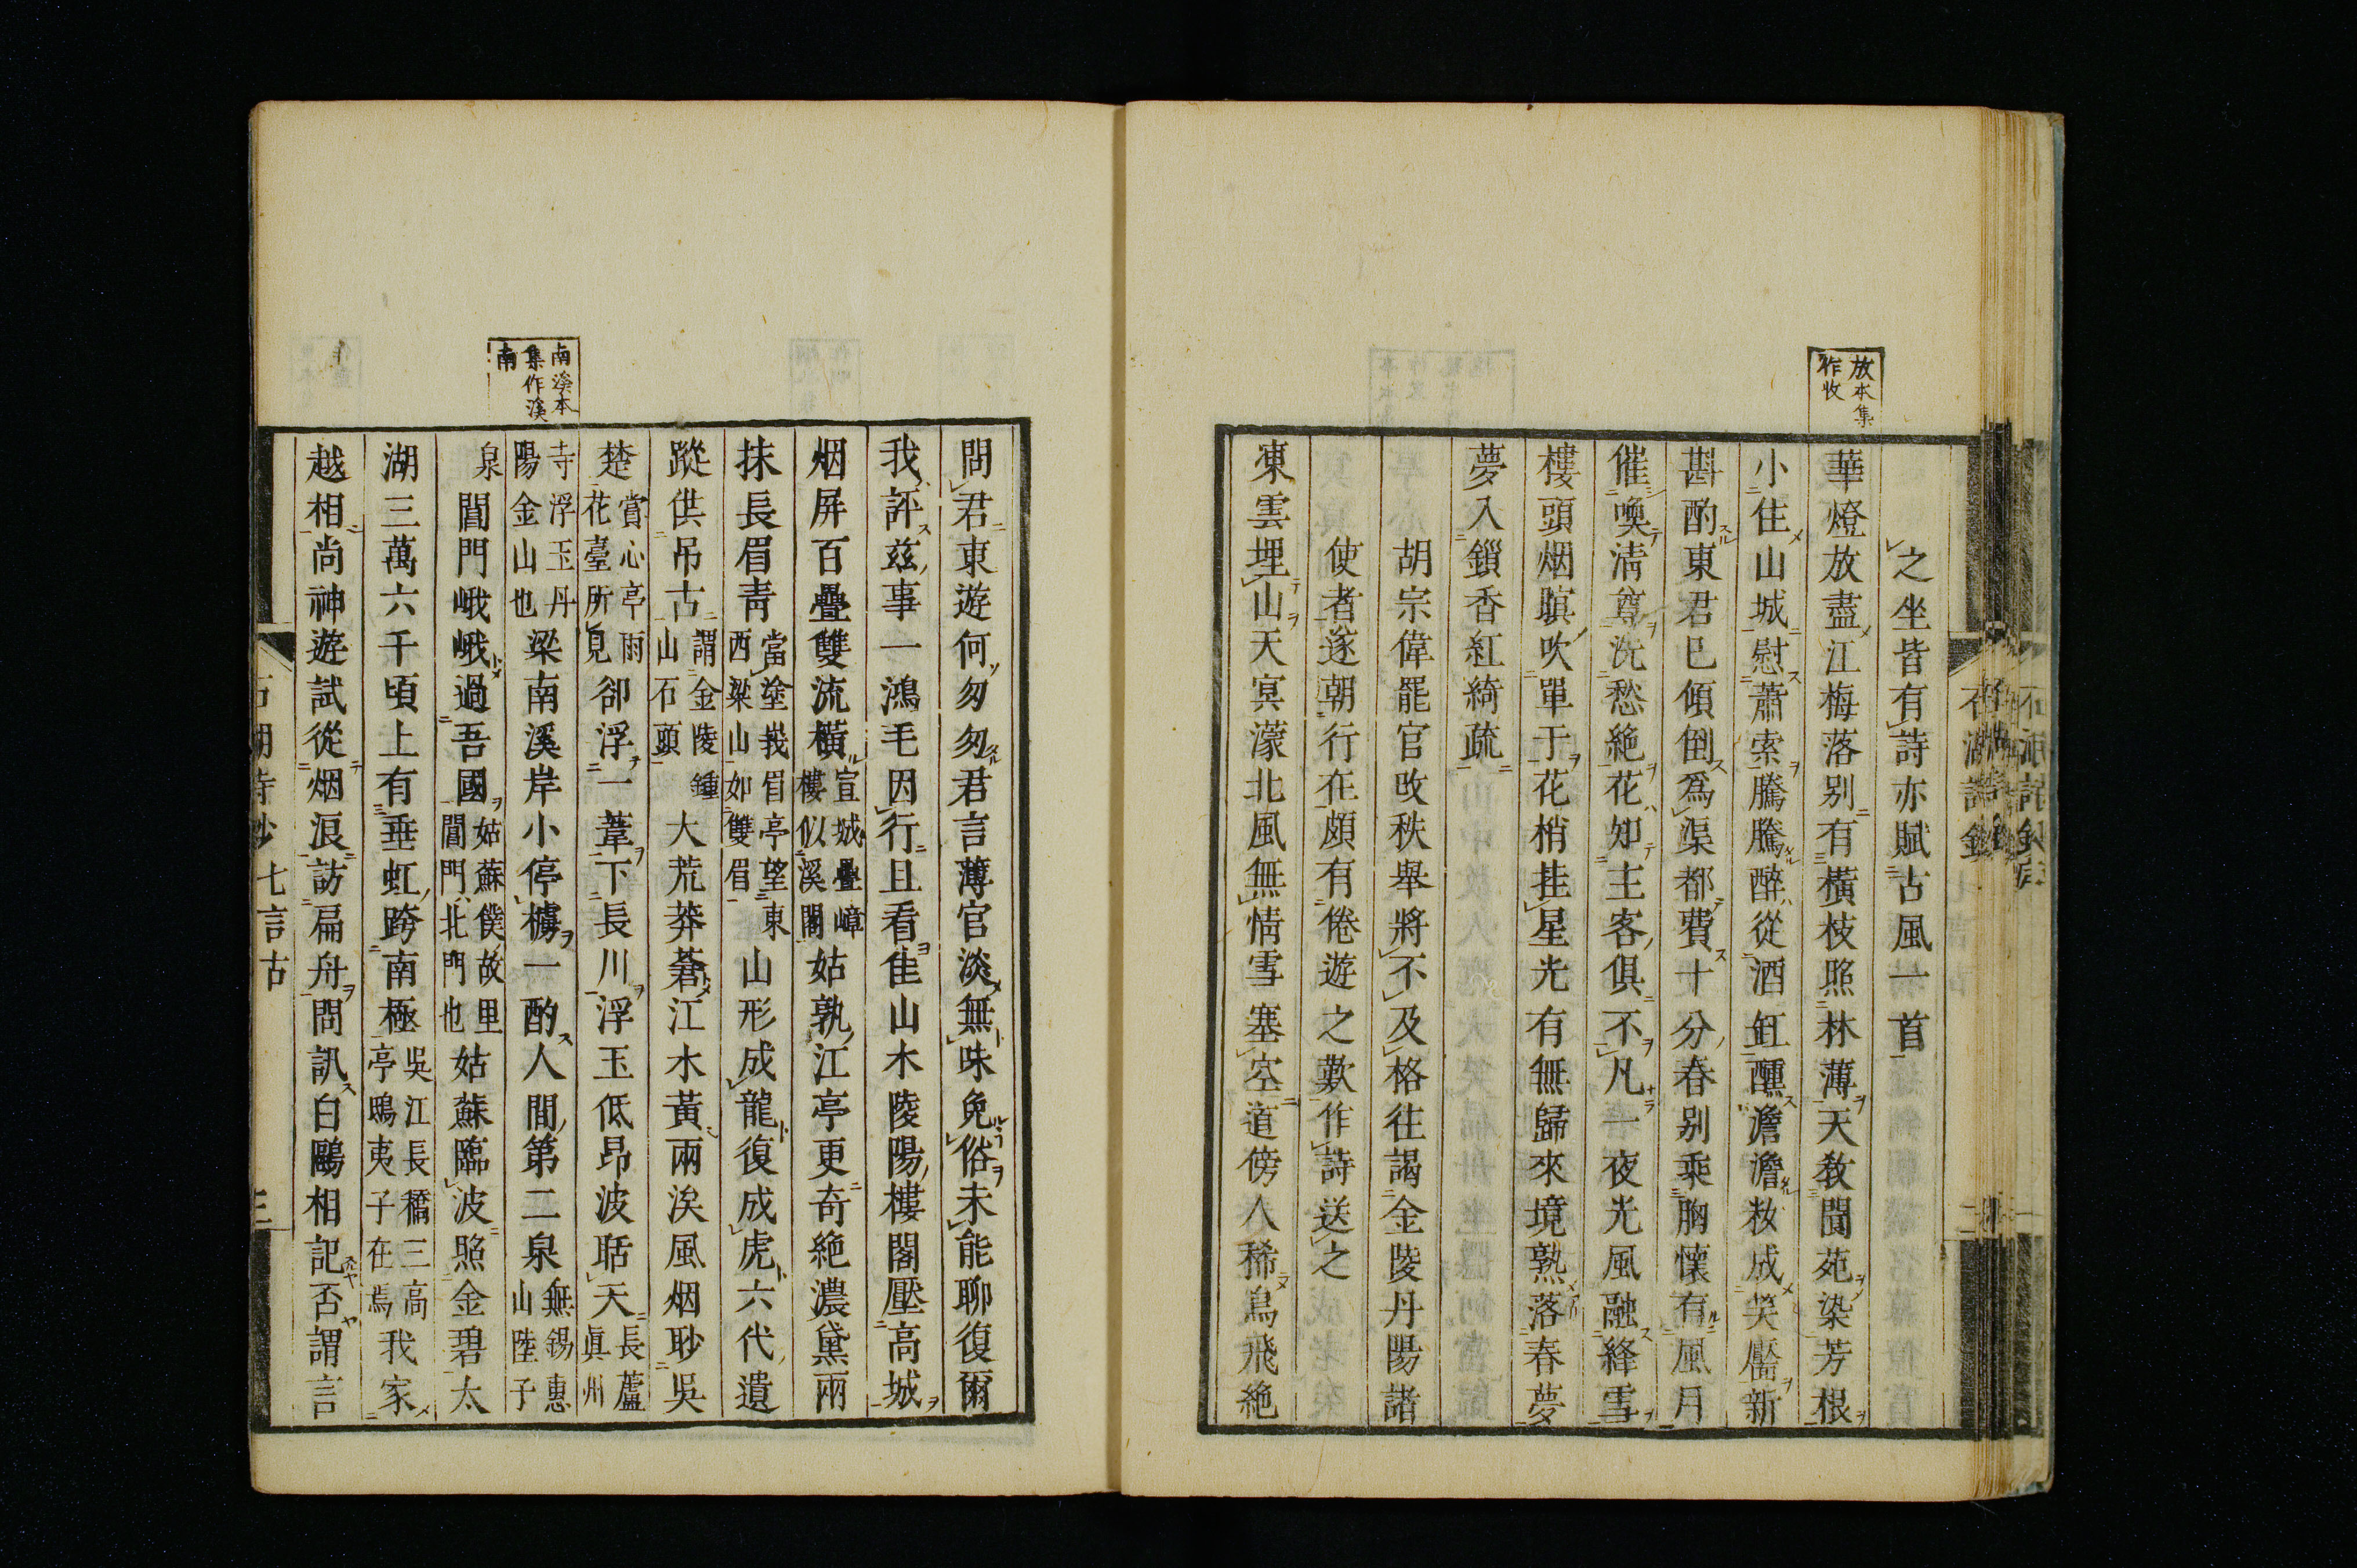 放本集
作收
之坐皆有詩亦賦古風一首
華燈放盡江梅落別有橫枝照林薄天教閬苑染芳根
小住山城慰蕭索騰騰醉從酒缸醺澹澹妝成笑靨新
斟酌東君已傾倒爲渠都費十分春別乘胸懷有風月
催喚淸尊洗愁絶花如主客俱不凡一夜光風融絳雪
樓頭烟暝吹單于花梢挂星光有無歸來境熟落春夢
夢入鎖香紅綺疏
胡宗偉罷官改秩舉將不及格往謁金陵丹陽諸
使者遂朝行在頗有倦遊之歎作詩送之
凍雲埋山天寞濛北風無情雪塞空道傍人稀鳥飛絶
石湖詩鈔
二
南溪本
集作溪
南
問君東遊何匆匆君言薄官淡無味免俗未能聊復爾
我評茲事一鴻毛因行且看佳山水陵陽樓閣壓高城
烟屏百疊雙流橫宣城疊嶂樓似溪閣姑孰江亭更奇絶濃黛兩
抹長眉靑當塗莪眉亭望東西粱山如雙眉山形成龍復成虎六代遺
蹤供吊古謂金陵鍾山石頭大荒莽蒼江水黃兩涘風烟眇吳
楚賞心亭雨花臺所見卻浮一葦下長川浮玉低昂波聒天長蘆眞州
寺浮玉丹陽金山也梁南溪岸小停櫓一酌人間第二泉無錫惠山陸子
泉閶門峨峨過吾國姑蘇僕故里閶門北門也姑蘇臨波照金碧太
湖三萬六千頃上有垂虹跨南極吳江長橋三高亭鴟夷子在焉我家
越相尚神遊試從烟浪訪扁舟問訊白鷗相記否謂言
石湖詩鈔 七言古
三